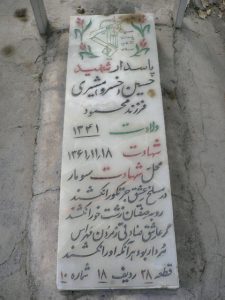 پاسدار شهید
حسین خسروامشیری
فرزند محمود
ولادت ۱۳۴۱
شهادت ۱۳۶۱.۱۱.۱۸
محل شهادت سومار
در مسلخ عشق جز نکو را نکشند
روبه صفتان زشت خو را نکشند
گر عاشق صادقی ز مردن مهراس
مردار بود هر آنکه او را نکشند
قطعه ۲۸ ردیف ۱۸ شماره ۱۰